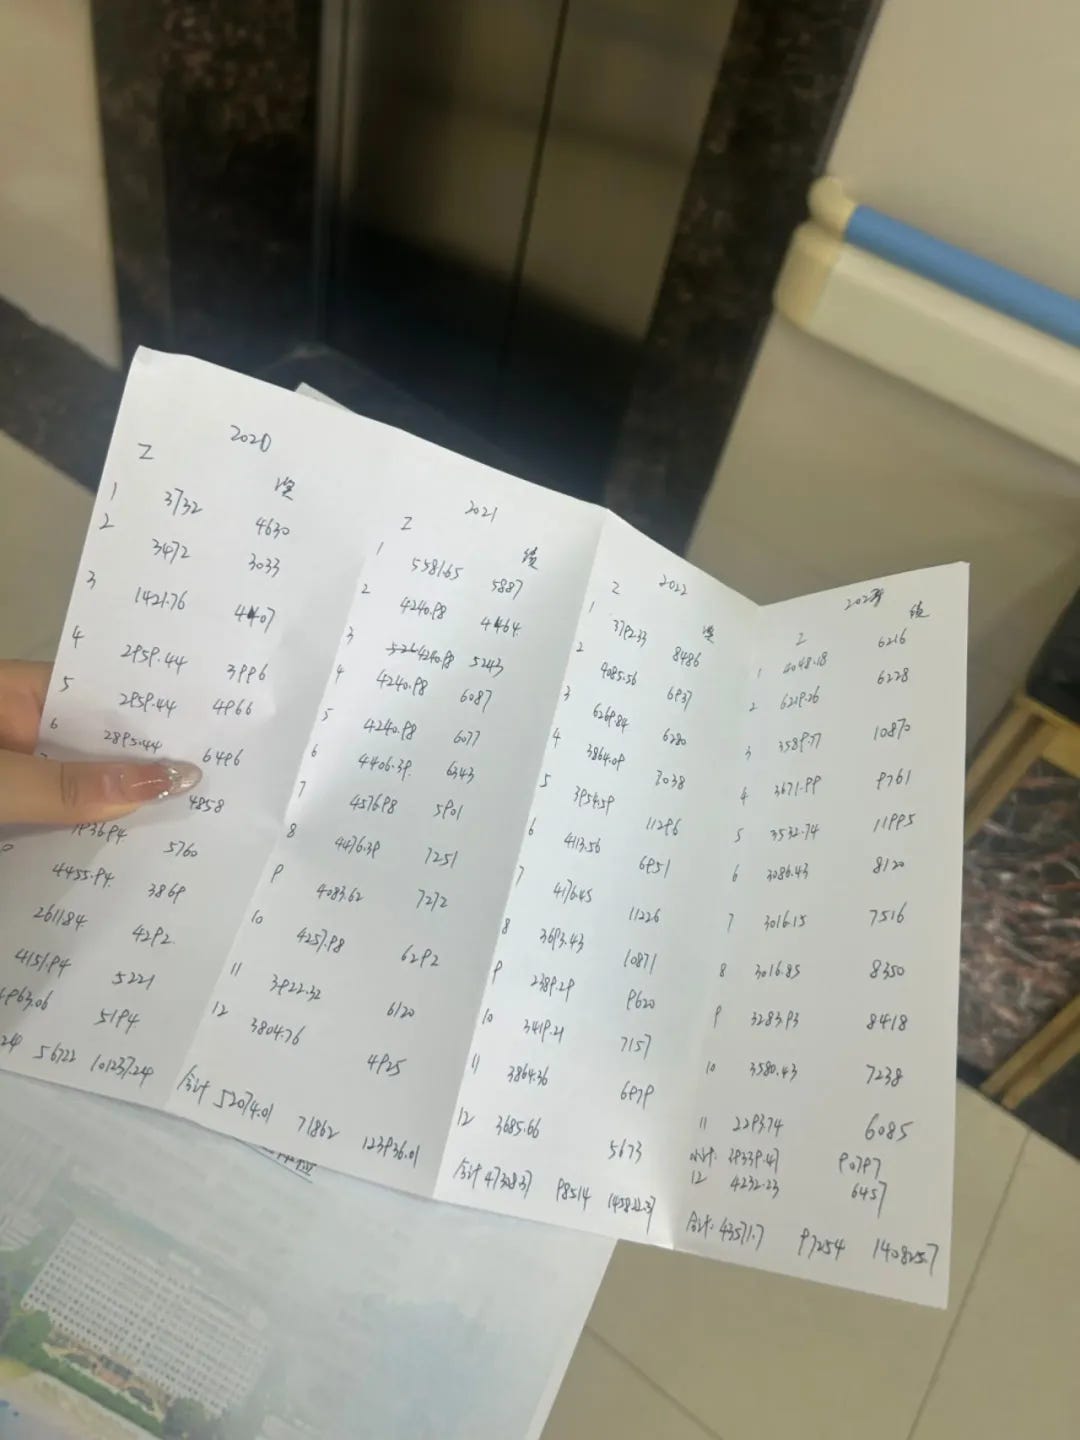 2020
工 奖
1 3732 4630
2 3472 3033
3 1421.76 4407
4 2959.44 3996
5 2959.44 4966
6 2895.44 6496
4858
1936.94 5760
9 4455.94 3869
2611.84 4292
4151.94 5221
4963.06 5194
56722 101237.24
2021
工 绩
1 5581.65 5887
2 4240.98 4464
3 4240.98 5243
4 4240.98 6087
5 4240.98 6077
6 4406.39 6343
7 4576.98 5901
8 4476.39 7251
9 4083.62 7272
10 4257.98 6292
11 3922.32 6120
12 3804.76 4925
合计 52074.01 71862 123936.01
2022
工 奖
1 3792.33 8486
2 4085.56 6937
3 6269.84 6280
4 3864.09 7038
5 3954.59 11296
6 4113.56 6951
7 4176.45 11226
8 3693.43 10871
9 2389.29 9620
10 3419.21 7157
11 3864.36 6979
12 3685.66 5673
合计 47308.37 98514 145822.37
2023
工 绩
1 4048.18 6216
2 6219.26 6228
3 3589.77 10870
4 3671.99 9761
5 3532.74 11995
6 3086.43 8120
7 3016.15 7516
8 3016.85 8350
9 3283.93 8418
10 3580.43 7238
11 2293.74 6085
小计: 39339.47 90797
12 4232.23 6457
合计: 43571.7 97254 140825.7